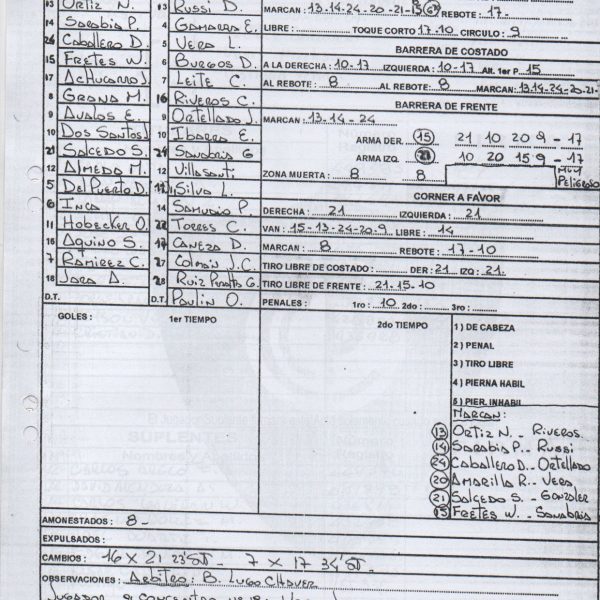 13 ORTIZ N. 3 RUSSI D. MARCAN : 13-14-24-20-21-15 REBOTE : 17-
14 SARABIA P. 4 GAMARRA E. LIBRE : TOQUE CORTO 17-10 CIRCULO : 9
24 CABALLERO D. 5 VERA L. BARRERA DE COSTADO
15 FRETES W. 6 BURGOS D. A LA DERECHA : 10-17 IZQUIERDA : 10-17 Alt. 1er P 15
17 ACHUCARRO J. 7 LEITE C. AL REBOTE : 8 AL REBOTE: 8 MARCAN: 13.14-24-20-21-
8 GRANA M. 16 RIVEROS C. BARRERA DE FRENTE
9 AVALOS E. 9 ORTELLADO J. MARCAN : 13-14-24
10 DOS SANTOS J. 10 IBARRA E. ARMA DER. 15 21 10 20 9 - 17
21 SALCEDO S. 24 SANABRIA G ARMA IZQ. 21 10 20 15 9 - 17
12 ALMEDA M. 12 VILLASANTI ZONA MUERTA : 8 8 MUY PELIGROSO
5 DEL PUERTO D. SILVA L. CORNER A FAVOR
6 INCA 14 SAMUDIO P. DERECHA : 21 IZQUIERDA : 21
11 HOBECKER O. 22 TORRES C. VAN : 15-13-24-20-9 LIBRE : 14
16 AQUINO S. 17 CANEZA D. MARCAN : 8 REBOTE : 17-10
7 RAMIREZ C. COLMAN J.C. TIRO LIBRE DE COSTADO : DER : 21 IZQ : 21.
18 JARA A. 28 RUIZ PERALTA G. TIRO LIBRE DE FRENTE : 21-15-10
D.T. D.T. PAULIN O. PENALES : 1ro : 10 2do : 3ro :
GOLES : 1er TIEMPO 2do TIEMPO 1 ) DE CABEZA
2 ) PENAL
3 ) TIRO LIBRE
4 ) PIERNA HABIL
5 ) PIER. INHABIL
MARCAN:
13 ORTIZ N. - RIVEROS
14 SARABIA P. - RUSSI
24 CABALLERO D. - ORTELLADO
20 AMARILLA R. - VERA
21 SALCEDO S. - GONZALEZ
15 FRETES W. - SANABRIA
SUPLENTES
AMONESTADOS : 8 -
EXPULSADOS :
CAMBIOS : 16 X 21 23' ST - 7 X 17 34' ST -
OBSERVACIONES : ARBITRO : B. LUGO CHAVEZ